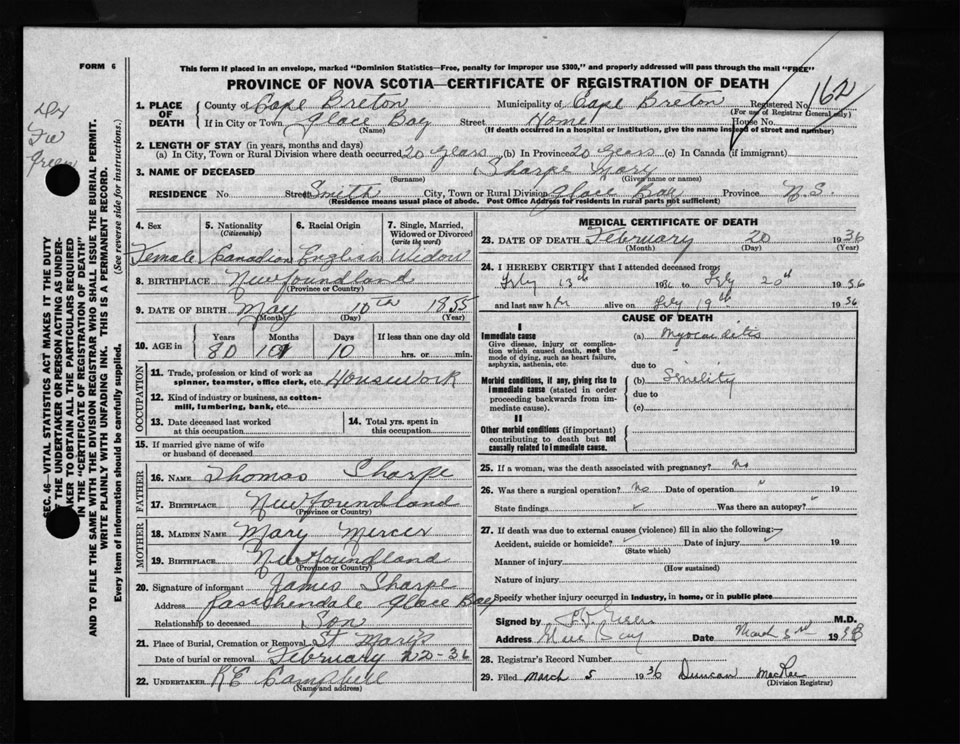 FORM 6
This form if placed in an envelope, marked "Dominion Statistics—Free, penalty for improper use $300," and properly addressed will pass through the mail "FREE"
PROVINCE OF NOVA SCOTIA—CERTIFICATE OF REGISTRATION OF DEATH
162
1. PLACE OF DEATH
County of Cape Breton Municipality of Cape Breton Registered No.
(For use of Registrar General only)
If in City or Town Glace Bay Street Home House No.
(Name) (If death occurred in a hospital or institution, give the name instead of street and number)
2. LENGTH OF STAY (in years, months and days)
(a) In City, Town or Rural Division where death occurred 20 years (b) In Province 20 years (c) In Canada (if immigrant)
3. NAME OF DECEASED Sharpe Mary
(Surname) (Given name or names)
RESIDENCE No. Street Smith City, Town or Rural Division Glace Bay Province N.S.
(Residence means usual place of abode. Post Office Address for residents in rural parts not sufficient)
4. Sex 5. Nationality (Citizenship) 6. Racial Origin 7. Single, Married, Widowed or Divorced (write the word)
Female Canadian English Widow
8. BIRTHPLACE Newfoundland
(Province or Country)
9. DATE OF BIRTH May 10th 1855
(Month) (Day) (Year)
10. AGE in Years Months Days If less than one day old
80 10 hrs. or min.
OCCUPATION
11. Trade, profession or kind of work as spinner, teamster, office clerk, etc. Housework
12. Kind of industry or business, as cotton-mill, lumbering, bank, etc.
13. Date deceased last worked at this occupation
14. Total yrs. spent in this occupation
15. If married give name of wife or husband of deceased
FATHER
16. NAME Thomas Sharpe
17. BIRTHPLACE Newfoundland
(Province or Country)
MOTHER
18. MAIDEN NAME Mary Mercer
19. BIRTHPLACE Newfoundland
(Province or Country)
20. Signature of informant James Sharpe
Address Passchendale Glace Bay
Relationship to deceased Son
21. Place of Burial, Cremation or Removal St Mary's
Date of burial or removal February 22-36
22. UNDERTAKER R E Campbell
(Name and address)
MEDICAL CERTIFICATE OF DEATH
23. DATE OF DEATH February 20 1936
(Month) (Day) (Year)
24. I HEREBY CERTIFY that I attended deceased from
13th 1936 to 20th 1936
and last saw h alive on 19th 1936
CAUSE OF DEATH
I
Immediate cause
Give disease, injury or complication which caused death, not the mode of dying, such as heart failure, asphyxia, asthenia, etc.
(a) Myocarditis
due to
Morbid conditions, if any, giving rise to immediate cause (stated in order proceeding backwards from immediate cause).
(b) Senility
due to
(c)
II
Other morbid conditions (if important) contributing to death but not causally related to immediate cause.
25. If a woman, was the death associated with pregnancy? No
26. Was there a surgical operation? No Date of operation 19
State findings Was there an autopsy?
27. If death was due to external causes (violence) fill in also the following:
Accident, suicide or homicide? Date of injury 19
(State which)
Manner of injury
(How sustained)
Nature of injury
Specify whether injury occurred in industry, in home, or in public place
Signed by M.D.
Address Glace Bay Date March 3rd 19
28. Registrar's Record Number
29. Filed March 5 1936 Duncan MacRae
(Division Registrar)
SEC. 46—VITAL STATISTICS ACT MAKES IT THE DUTY
OF THE UNDERTAKER OR PERSON ACTING AS UNDER-
TAKER TO OBTAIN ALL THE PARTICULARS REQUIRED
IN THE "CERTIFICATE OF REGISTRATION OF DEATH"
AND TO FILE THE SAME WITH THE DIVISION REGISTRAR WHO SHALL ISSUE THE BURIAL PERMIT.
WRITE PLAINLY WITH UNFADING INK. THIS IS A PERMANENT RECORD.
Every item of information should be carefully supplied. (See reverse side for instructions.)